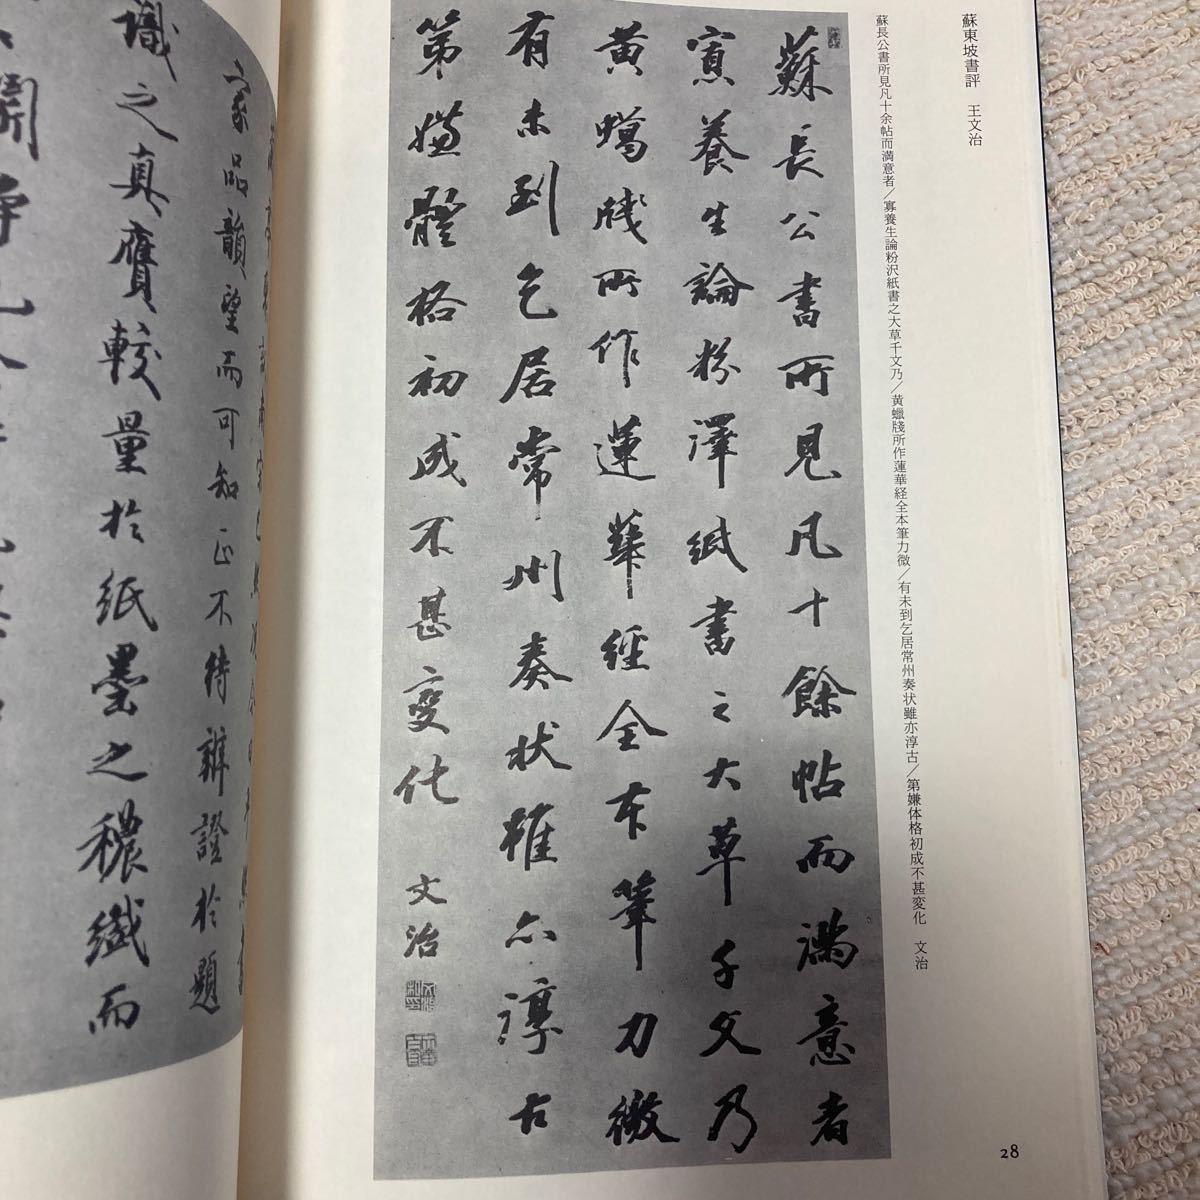 蘇東坡書評　王文治
蘇長公書所見凡十余帖而満意者／寡養生論粉沢紙書之大草千文乃／黄蠟牋所作蓮華経全本筆力微／有未到乞居常州奏状雖亦淳古／第嫌体格初成不甚変化　文治
蘇長公書所見凡十餘帖而滿意者
寡養生論粉澤紙書之大草千文乃
黄蠟牋所作蓮華經全本筆力微
有未到乞居常州奏状雖亦淳古
第嫌體格初成不甚變化　文治
28
之家品韻望而可知正不待辨證於題
識之真贋較量於紙墨之穠纖而